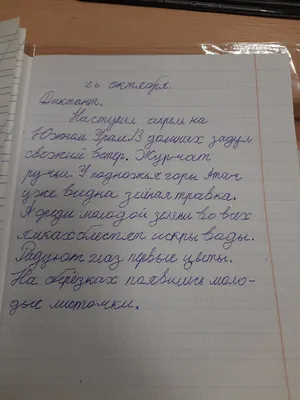 26 октября.
Диктант.
Наступил апрель на
Южном Урале. В долинах задул
свежий ветер. Журчат
ручьи. У подножья горы Ятаг
уже видна зелёная травка.
А среди молодой зелени во всех
ямках блестят искры воды.
Радуют глаз первые цветы.
На берёзках появились моло-
дые листочки.